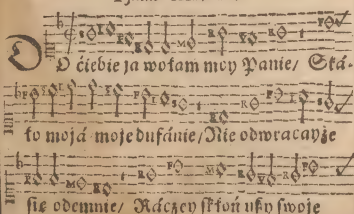 DO ćiebie ja wołam moy Panie/ Ská-
ło mojá moje dufánie/ Nie odwracayże
śię odemnie/ Ráczey skłoń uszy swoje